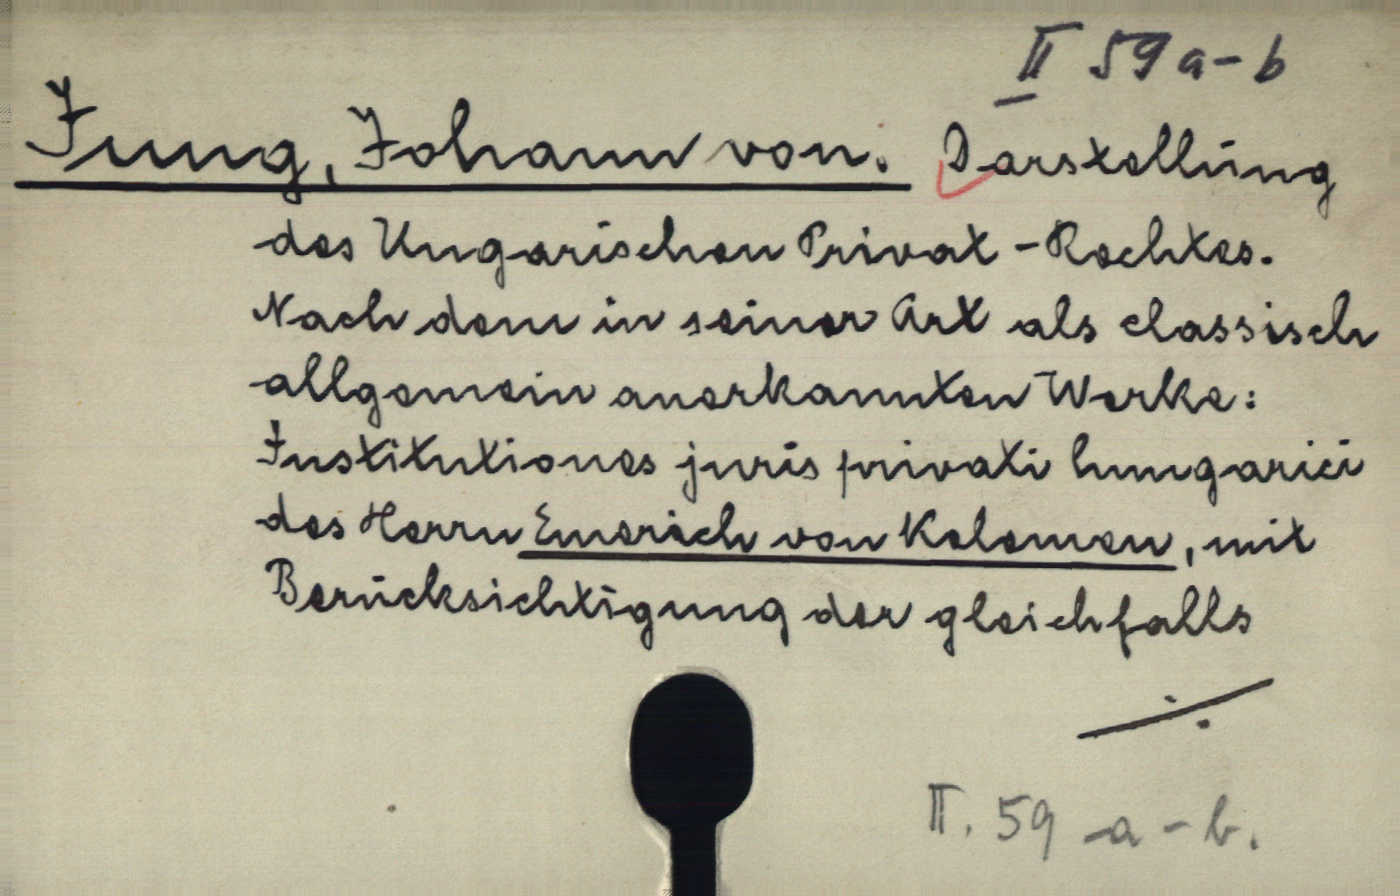 II 59 a-b
Jung, Johann von. Darstellung
des Ungarischen Privat-Rechtes.
Nach dem in seiner Art als classisch
allgemein anerkannten Werke:
Institutiones juris privati hungarici
des Herrn Emerich von Kelemen, mit
Berücksichtigung der gleichfalls
./.
II. 59 a-b.